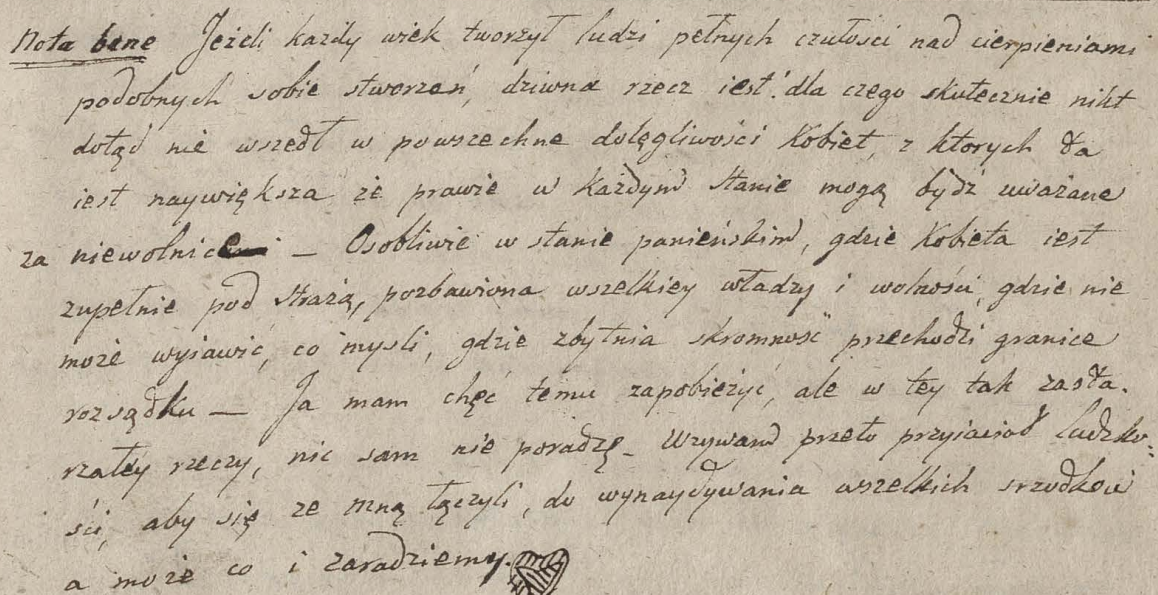 Nota bene Jeżeli każdy wiek tworzył ludzi pełnych czułości nad cierpieniami
podobnych sobie stworzeń, dziwna rzecz iest: dla czego skutecznie nikt
dotąd nie wszedł w powszechne dolęgliwości Kobiet, z ktorych ta
iest naywiększa że prawie w każdym stanie mogą bydź uważane
za niewolnice – Osobliwie w stanie panieńskim, gdzie Kobieta iest
zupełnie pod strażą, pozbawiona wszelkiey władzy i wolności, gdzie nie
może wyiawić, co mysli, gdzie zbytnia skromność przechodzi granice
rozsądku – Ja mam chęć temu zapobieżyć, ale w tey tak zasta-
rzałey rzeczy, nic sam nie poradzę – Wzywam przeto przyiaciół ludzko-
ści, aby się ze mną łączyli, do wynaydywania wszelkich srzodków
a może co i zaradziemy.